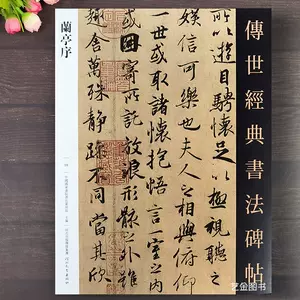 傳世經典書法碑帖
所以遊目騁懷足以極視聽之
娛信可樂也夫人之相與俯仰
一世或取諸懷抱悟言一室之內
或因寄所託放浪形骸之外雖
趣舍萬殊靜躁不同當其欣
蘭亭序
藝金图书